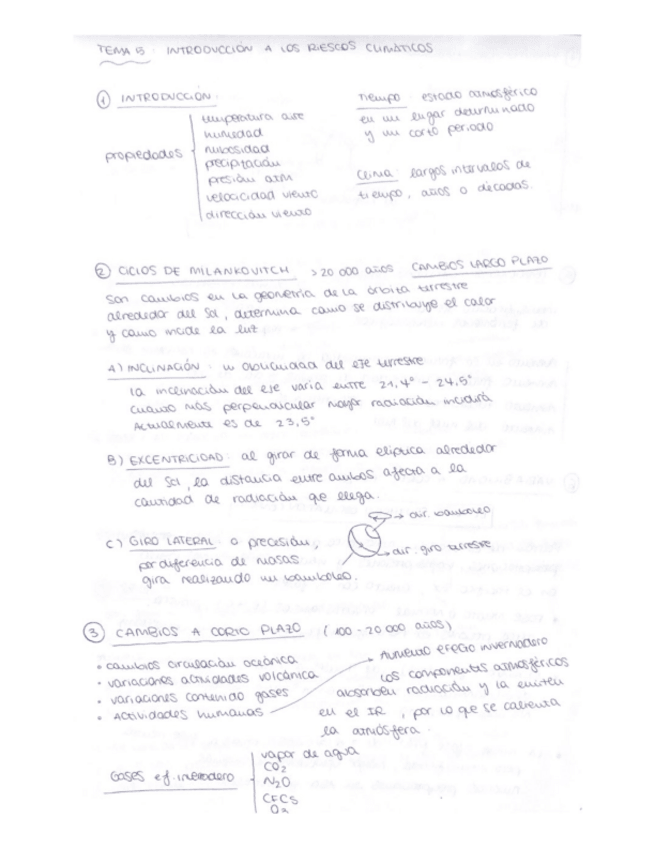 TEMA 5 : INTRODUCCIÓN A LOS RIESGOS CLIMÁTICOS
① INTRODUCCIÓN:
propiedades
temperatura aire
humedad
nubosidad
precipitación
presión atm
velocicidad viento
dirección viento
Tiempo : estado atmosférico
en un lugar determinado
y un corto periodo
Clima : largos intervalos de
tiempo, años o décadas.
② CICLOS DE MILANKOVITCH > 20 000 años CAMBIOS LARGO PLAZO
Son cambios en la geometría de la órbita terrestre
alrededor del Sol, determina como se distribuye el calor
y como incide la luz
A) INCLINACIÓN : u oblicuidad del eje terrestre
la inclinación del eje varía entre 21,4° - 24,5°
cuanto más perpendicular mayor radiación incidirá
Actualmente es de 23,5°
B) EXCENTRICIDAD : al girar de forma elíptica alrededor
del Sol, la distancia entre ambos afecta a la
cantidad de radiación que llega.
C) GIRO LATERAL o precesión,
por diferencia de masas
gira realizando un bamboleo.
→ dir. bamboleo
→ dir. giro terrestre
③ CAMBIOS A CORTO PLAZO ( 100 - 20 000 años)
• cambios circulación oceánica
• variaciones actividades volcánica
• variaciones contenido gases
• Actividades humanas
Aumento efecto invernadero
los componentes atmosféricos
absorben radiación y la emiten
en el IR , por lo que se calienta
la atmósfera.
Gases ef. invernadero
vapor de agua
CO2
N2O
CFCS